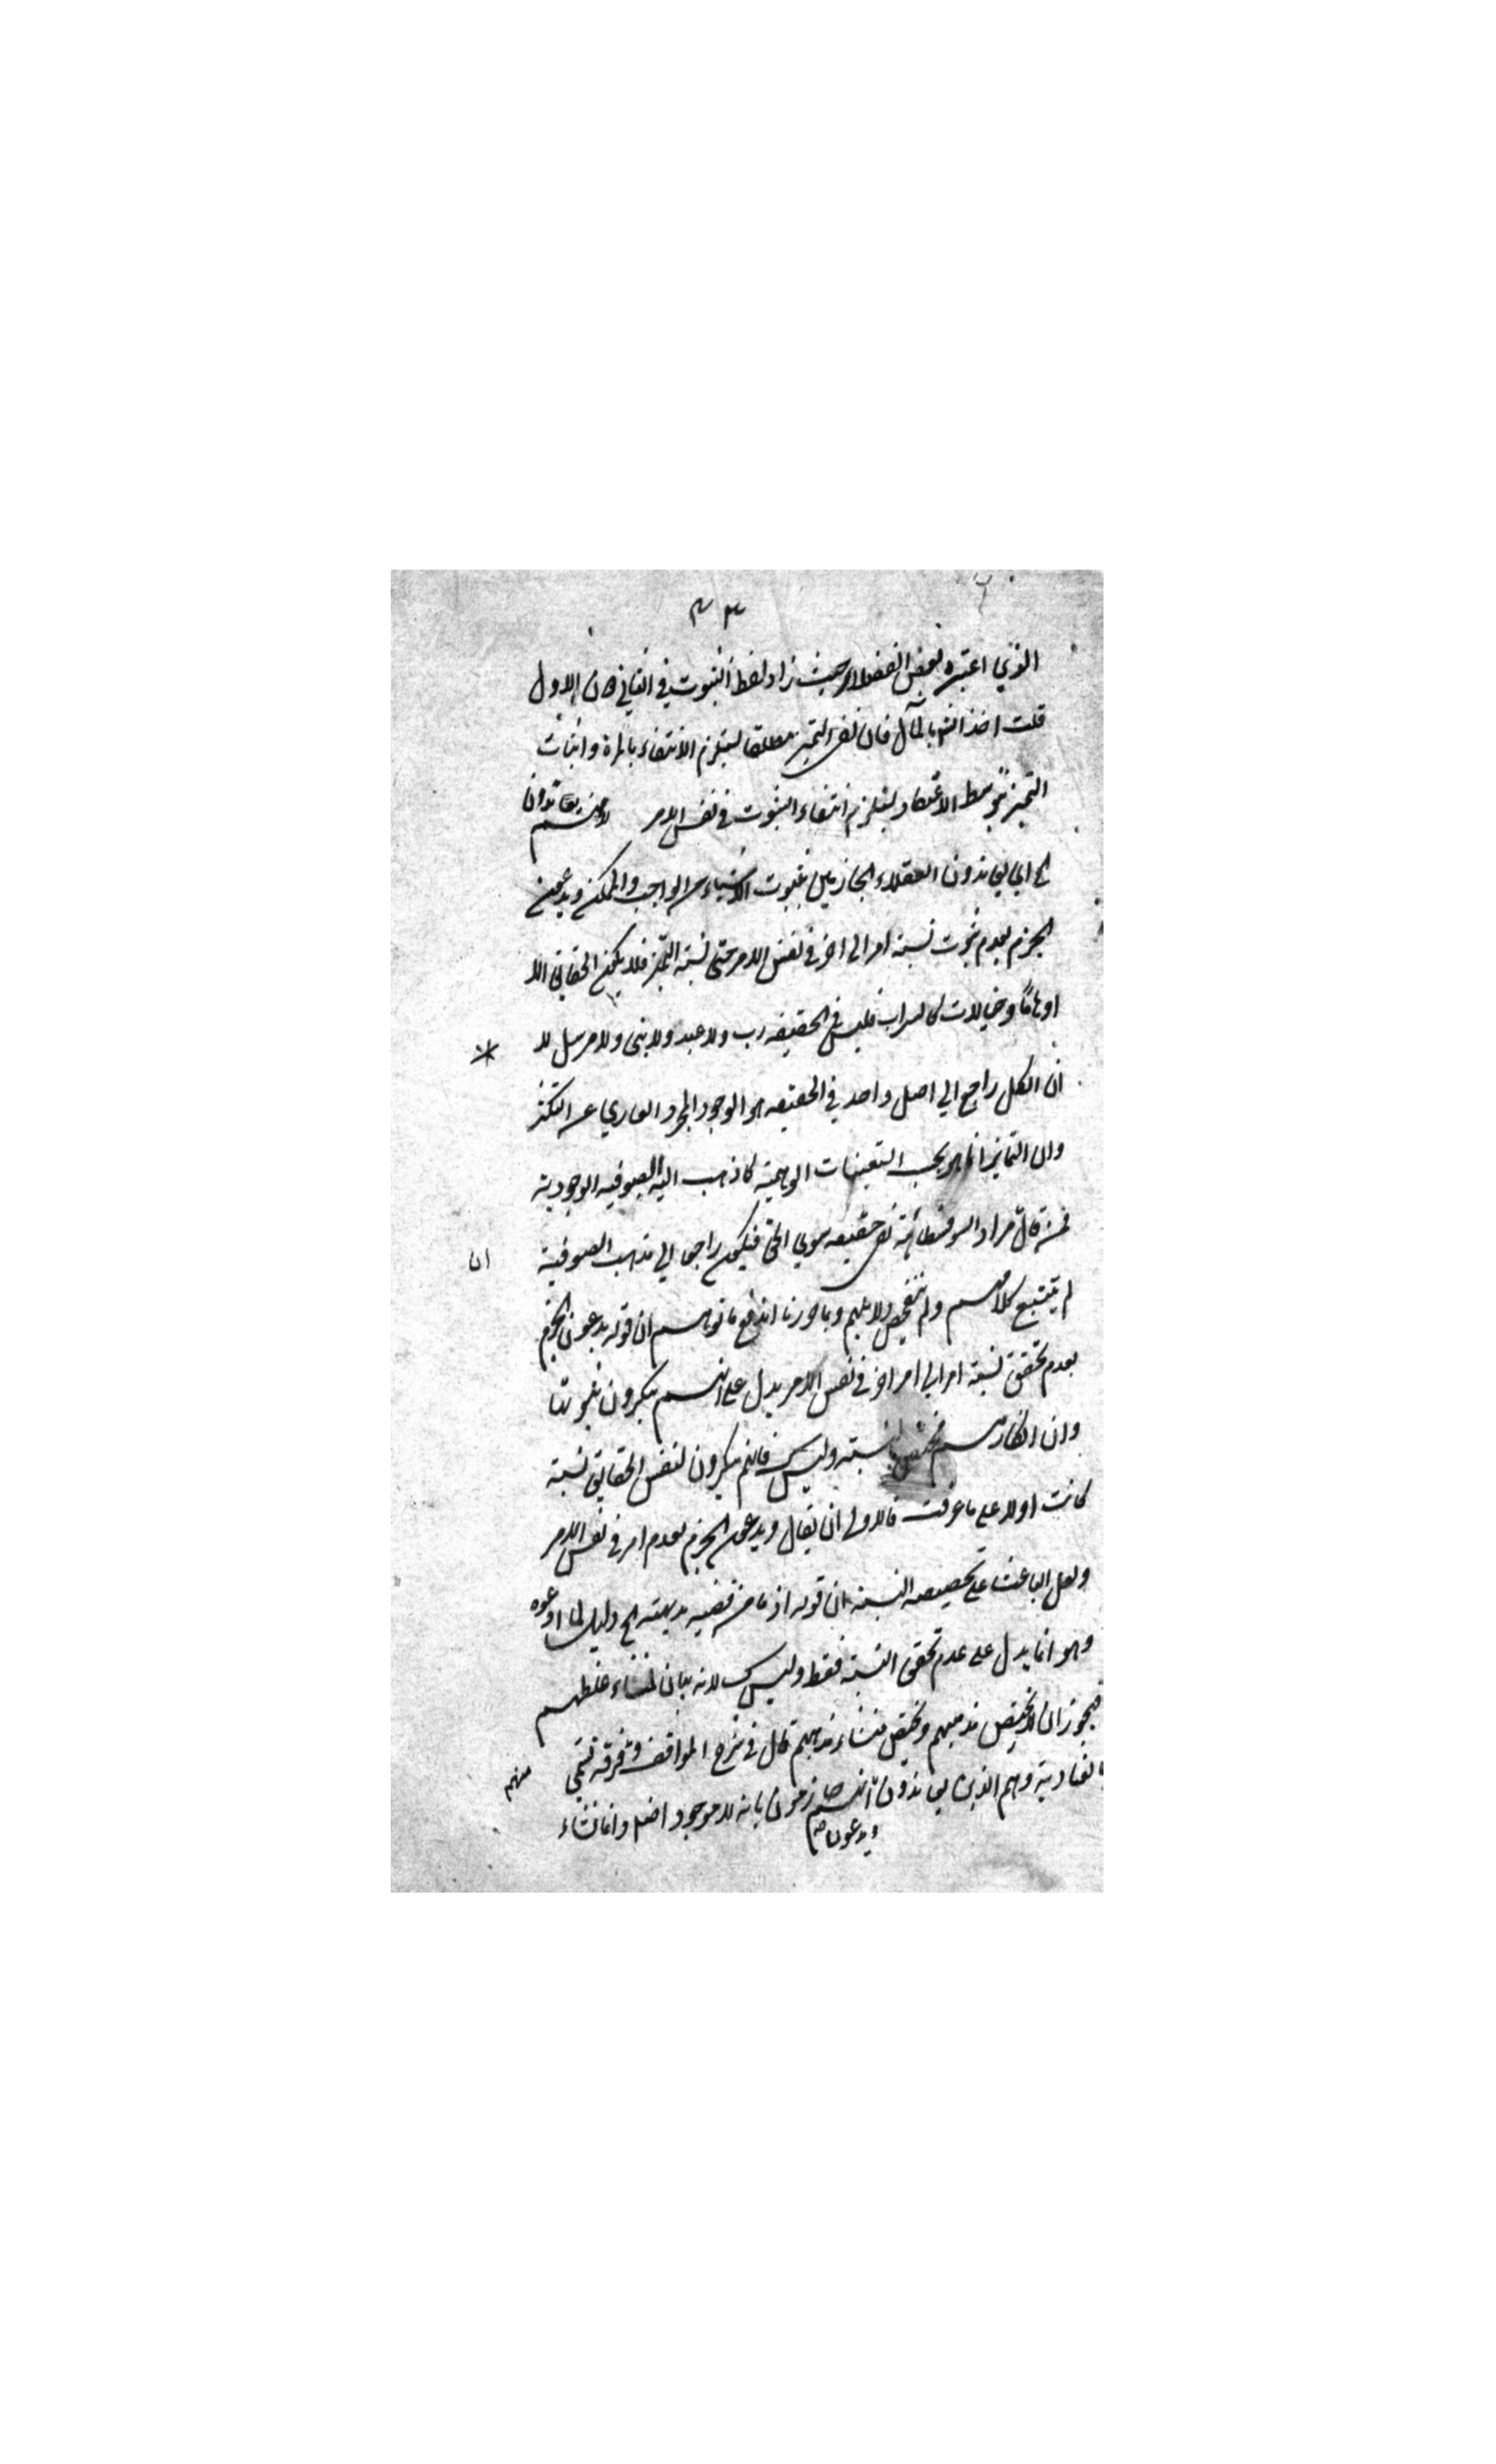 ٣٣
الذي اعتبره بعض الفضلاء حيث زاد لفظ الثبوت في الثاني دون الاول
قلت اخذ الشق بالمآل فان نفي التميز مطلقا يستلزم الانتفاء بالمرة واثبات
التميز بتوسط الاعتقاد يستلزم انتفاء الثبوت في نفس الامر قوله لانهم يعاندون
الخ اي يعاندون العقلاء الجازمين بثبوت الاشياء من الواجب والممكن ويدعون
الجزم بعدم ثبوت نسبة امر الي اخر في نفس الامر حتى نسبة التميز فلا يكون الحقايق الا
اوهاما وخيالات كالسراب فليس في الحقيقه رب ولا عبد ولا نبي ولا مرسل لا *
ان الكل راجع الي اصل واحد في الحقيقه هو الوجود المجرد العاري عن التكثر
وان التمايز انما هو بحسب التعينات الوهمية كما ذهب اليه الصوفيه الوجودية
فمن قال مراد السوفسطائية نفي حقيقه سوي الحق فيكون راجعا الي مذهب الصوفية ان
لم يتتبع كلامهم ولم يتفحص دلائلهم وبما حررنا اندفع ما توهم ان قوله يدعون الجزم
بعدم تحقق نسبة امر الي امر اخر في نفس الامر يدل على انهم ينكرون ثبوتها
وان انكارهم مختص بالنسبة وليس فانهم ينكرون لنفس الحقايق نسبة
كانت اولا على ما عرفت فالاولى ان يقال ويدعون الجزم بعدم امر في نفس الامر
ولعل الباعث على تخصيصه النسبة ان قوله اذ ما من قضيه بديهته الخ دليل لما ادعوه
وهو انما يدل على عدم تحقق النسبة فقط وليس لانه بيان لمنشاء غلطهم
فيجوز ان لا يختص مذهبهم ويختص منشاء مذهبهم قال في شرح المواقف وفرقة تسمي
بالعنادية وهم الذين يعاندون ويدعون انهم جازمون بانه لا موجود اصلا وانما نشاء
منهم